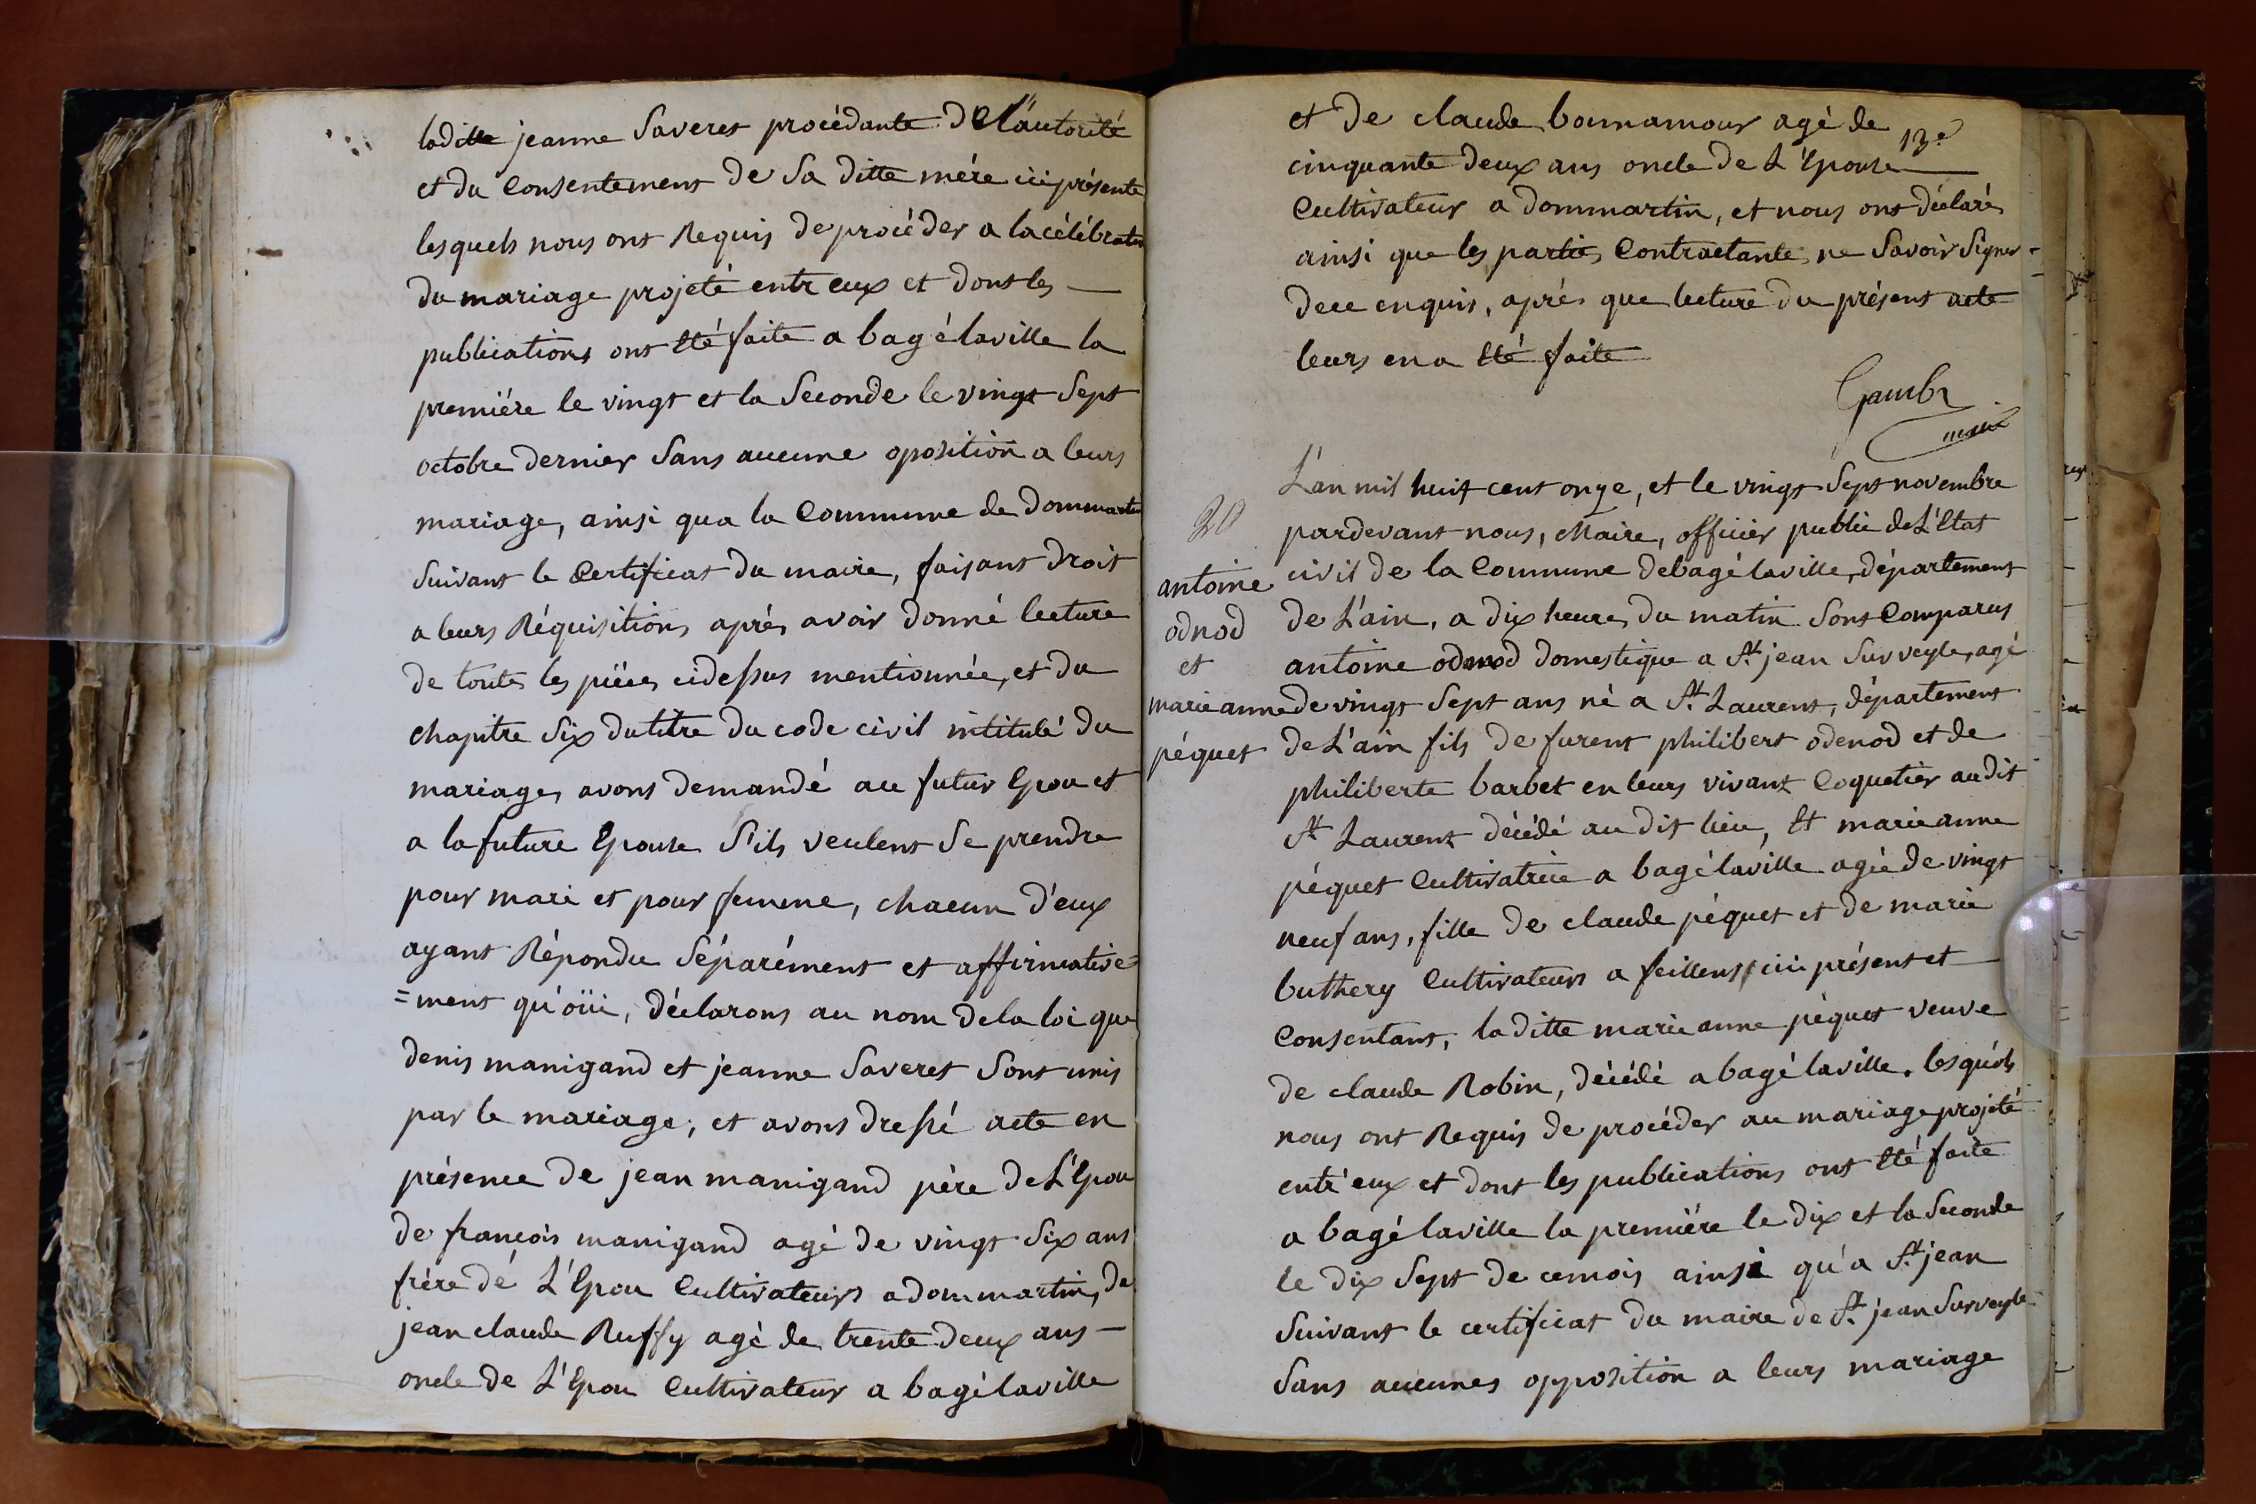 laditte jeanne Saveret procédante de l'autorité
et du Consentement de Sa ditte mére ici présente
lesquels nous ont Requis de procéder a la célébration
du mariage projeté entr eux et dont les
publications ont été faite a bagé laville la
premiére le vingt et la Seconde le vingt Sept
octobre dernier Sans aucune oposition a leurs
mariage, ainsi qua la Commune de dommartin
Suivant le Certificat du maire, faisant droit
a leurs Réquisitions aprés avoir donné lecture
de toutes les piéces cidessus mentionnée, et du
chapitre Six dutitre du code civil intitulé du
mariage, avons demandé au futur Epou et
a la future Epouse S'ils veulent Se prendre
pour mari et pour femme, chacun d'eux
ayant Répondu Séparément et affirmative=
=ment qu'oüi, déclarons au nom dela loi que
denis manigand et jeanne Saveret Sont unis
par le mariage, et avons dressé acte en
présence de jean manigand père de L'Epou
de françois manigand agé de vingt Six ans
frére dé L'Epou Cultivateurs a dommartin, de
jean claude Ruffy agé de trente deux ans
oncle de L'Epou Cultivateur a bagé laville
13e
et de claude bonnamour agé de
cinquante deux ans oncle de L'Epouse
Cultivateur a dommartin, et nous ont déclarés
ainsi que les parties Contractantes ne Savoir Signer
dece enquis, aprés que lecture du présent acte
leurs en a été faite
Gambr
maire
20
antoine
odnod
et
marie anne
péquet
L'an mil huit cent onze, et le vingt Sept novembre
pardevant nous, Maire, officier public de L'Etat
civil de la Commune debagé laville, département
de L'ain, a dix heures du matin Sont Comparus
antoine odenod domestique a St jean Surveyle, agé
de vingt Sept ans né a St Laurent, département
de L'ain fils de furent philibert odenod et de
philiberte barbet en leurs vivant Coquetier audit
St Laurent décédé au dit lieu, Et marie anne
péquet Cultivatrice a bagé laville agée de vingt
neuf ans, fille de claude péquet et de marie
buthery Cultivateurs a feillens, ici présent et
Consentant, laditte marie anne péquet veuve
de claude Robin, décédé a bagé laville. lesquéls
nous ont Requis de procéder au mariage projeté
entr'eux et dont les publications ont été faite
a bagé laville la premiére le dix et la Seconde
le dix Sept de cemois ainsi qu'a St jean
Suivant le certificat du maire de St jean Surveyle
Sans aucunes opposition a leurs mariage